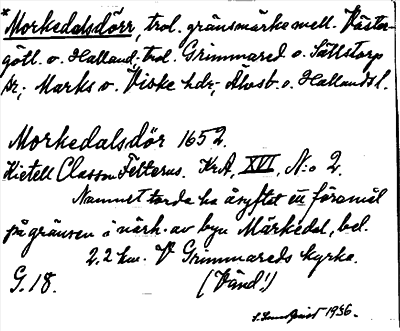 * Morkedalsdörr, trol. gränsmärke mell. Väster-
götl. o. Halland; trol. Grimmared o. Sällstorp
sr; Marks o. Viske hdr; Älvsb. o. Hallands l.
Morkedalsdör 1652.
Kietell Classon Felterus. KrA, XVI, N:o 2.
Namnet torde ha åsyftat ett föremål
på gränsen i närh. av byn Märkedal, bel.
2.2 km. V Grimmareds kyrka.
G. 18. (Vänd!)
1936.